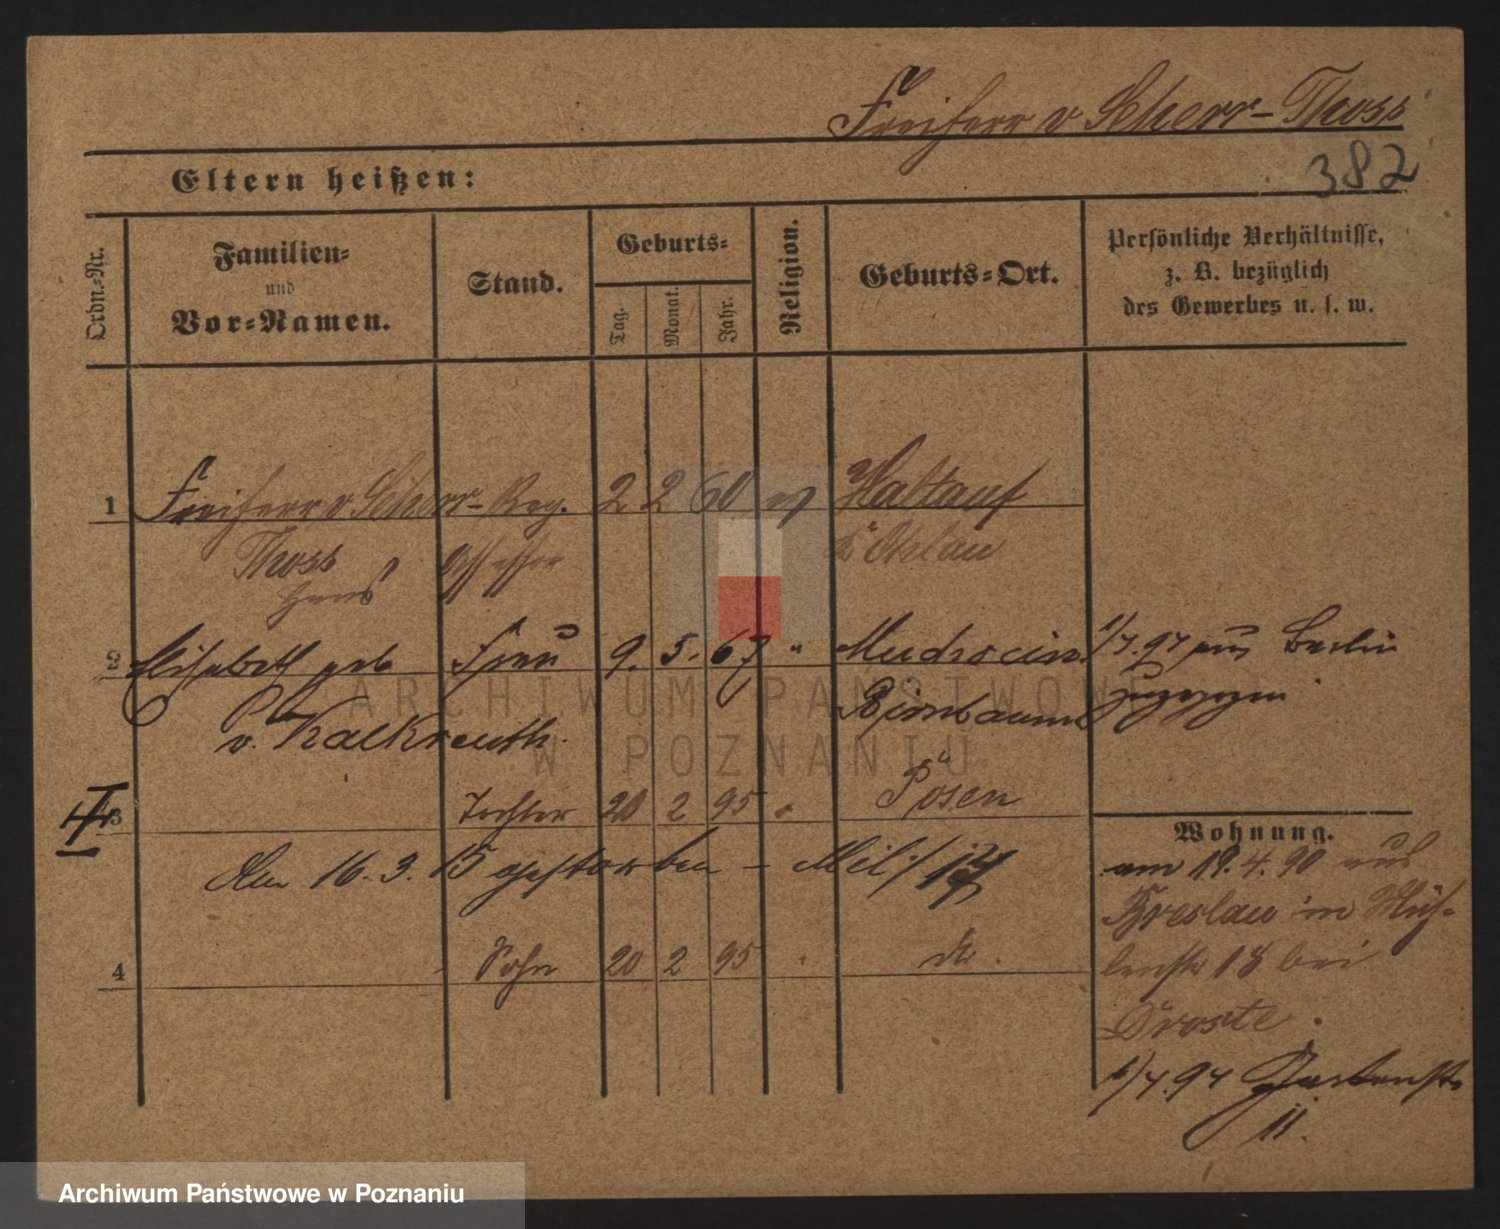 Freiherr v Scherr-Thoss
Eltern heißen:
382
Ordn.-Nr.
Familien-
und
Vor-Namen.
Stand.
Geburts-
Tag.
Monat.
Jahr.
Religion.
Geburts-Ort.
Persönliche Verhältnisse,
z. B. bezüglich
des Gewerbes u. s. w.
1 Freiherr v Scherr- Reg. 2 2 60 ev Haltauf
Thoss Assessor Ohlau
Hans
2 Elisabeth geb Frau 9. 5. 67 " 1/7. 97 aus Berlin
v. Kalkreuth Birnbaum zugezogen
3 Tochter 20 2 95 " Posen
Den 16. 3. 15 gestorben - Mil
4 Sohn 20 2 95 " do.
Wohnung.
am 19. 4. 90 aus
Breslau in Müh-
lenstr 18 bei
Droste.
1/4. 94 Gartenstr
11.
ARCHIWUM PAŃSTWOWE
W POZNANIU
Archiwum Państwowe w Poznaniu